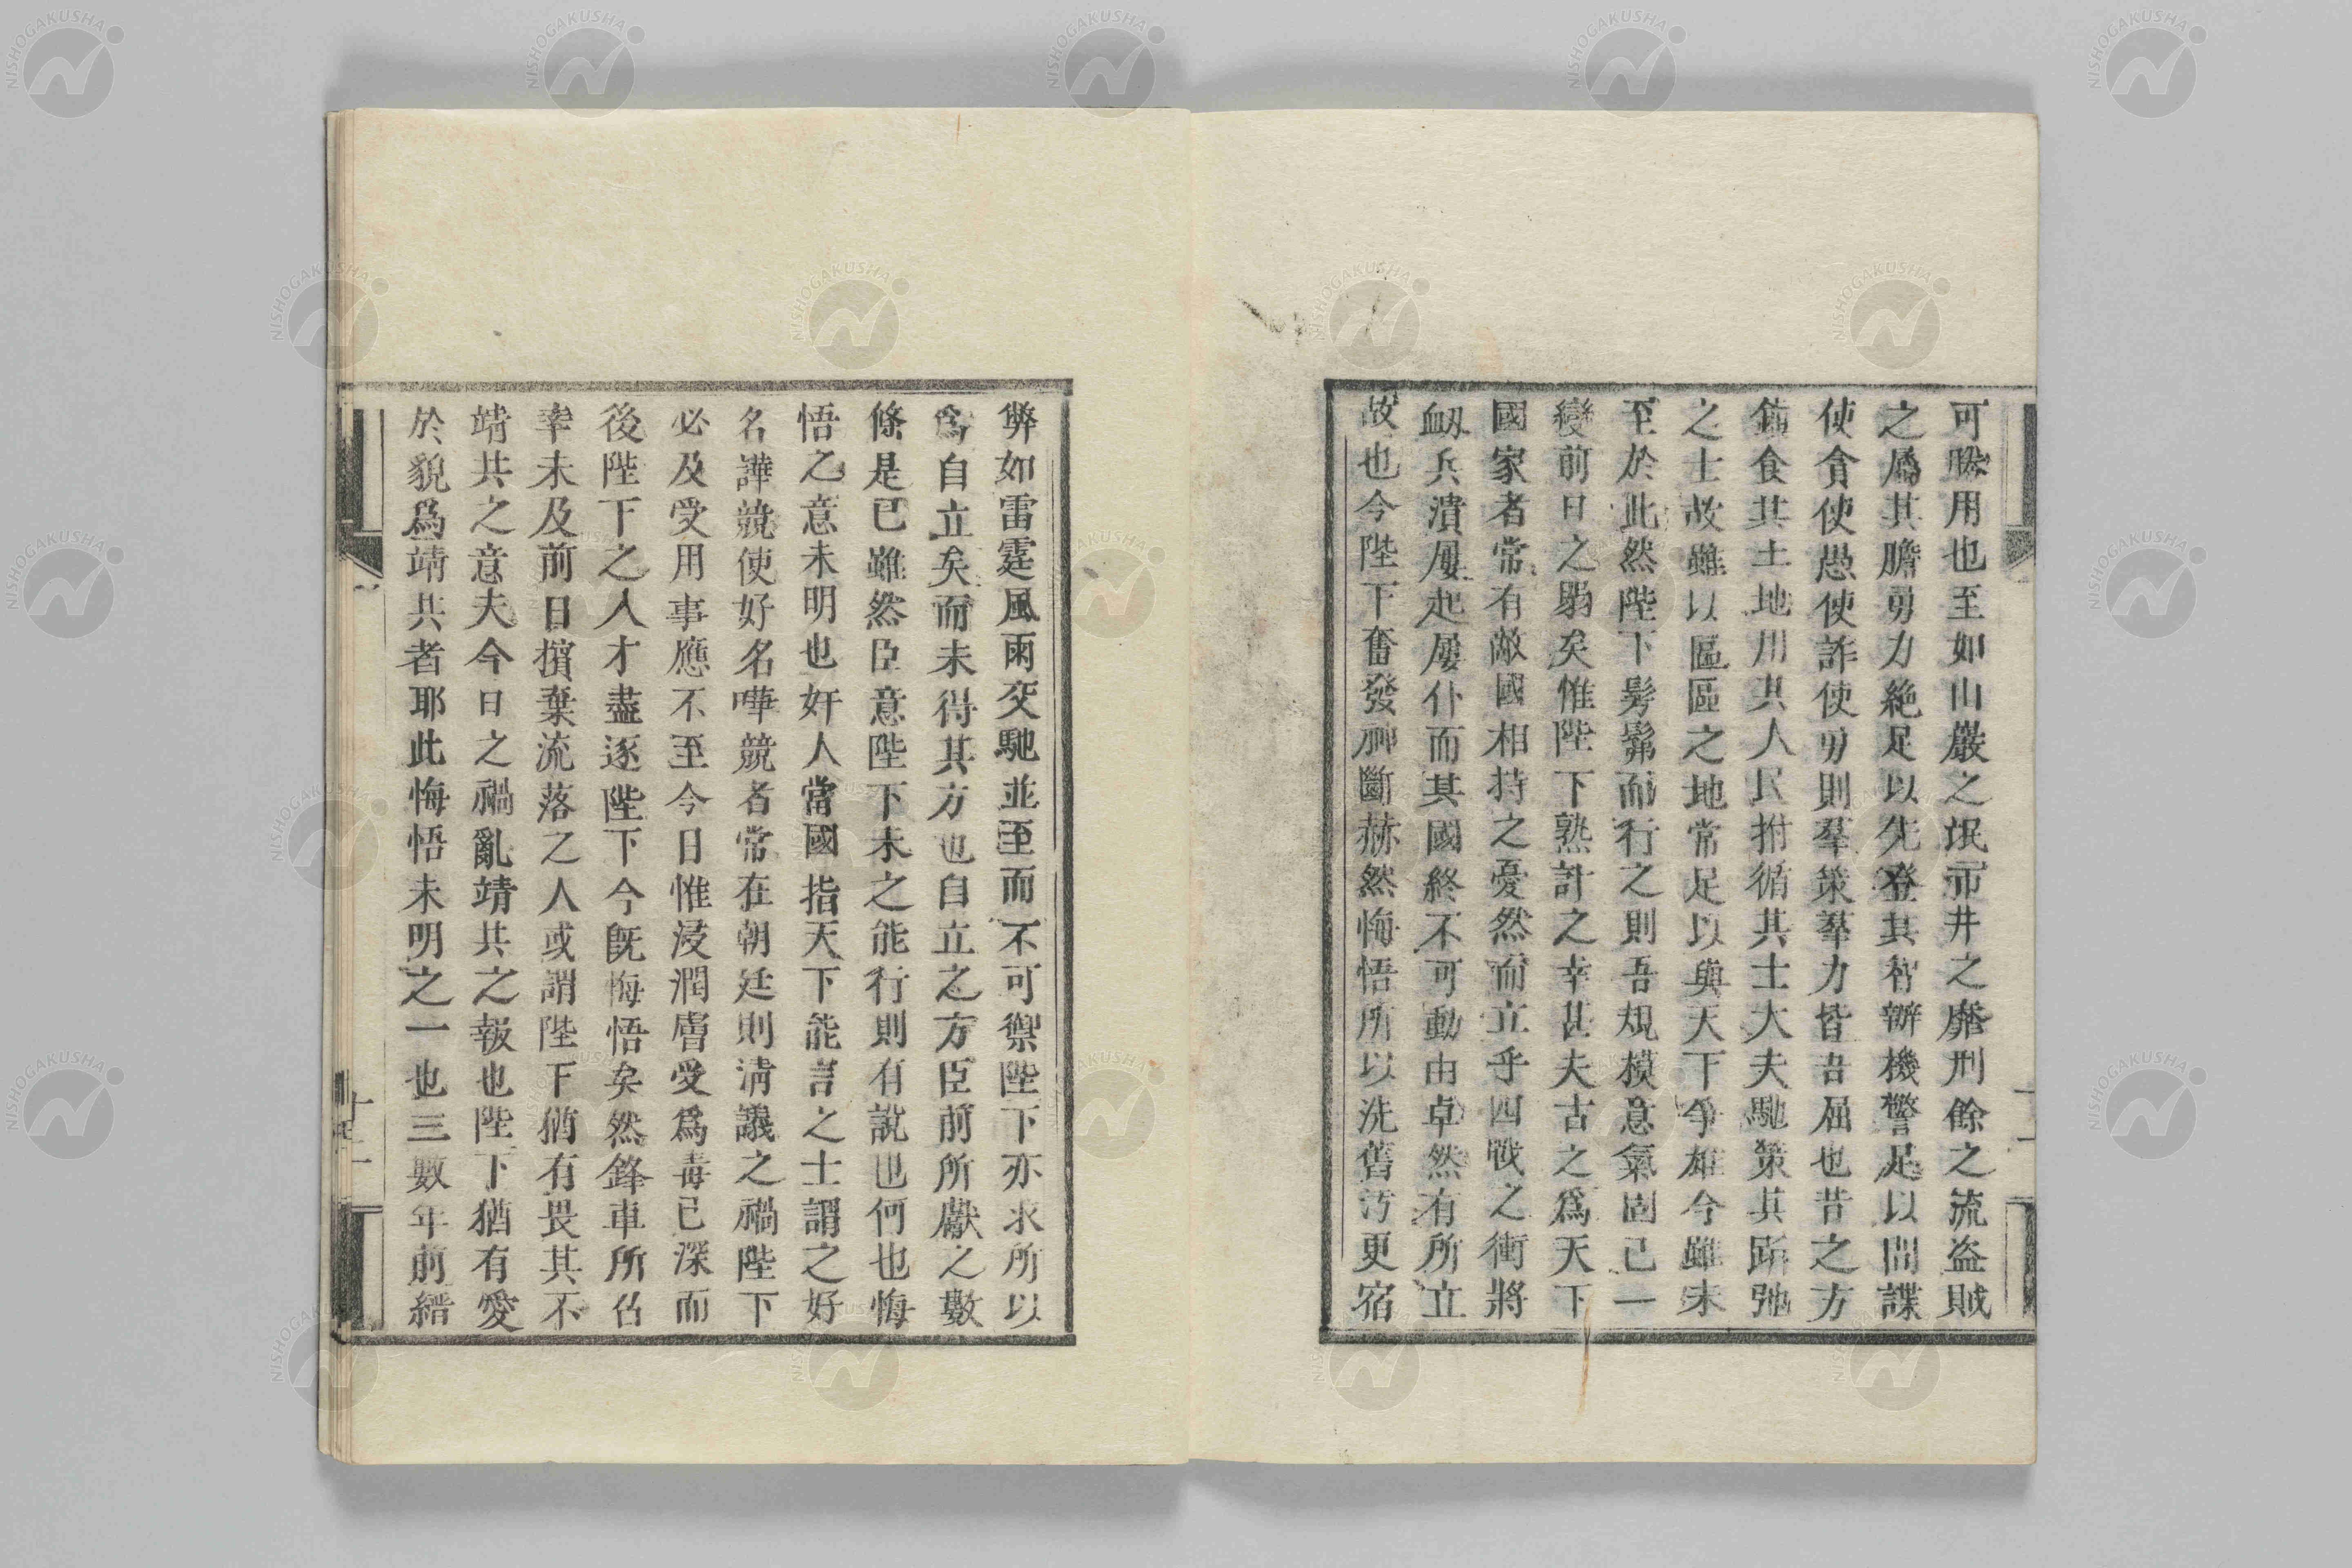 可勝用也至如山巖之氓市井之靡刑餘之流盗賊
之屬其膽勇力絶足以先登其智辯機警足以間諜
使貪使愚使詐使勇則羣策羣力皆吾屈也昔之方
鎮食其土地用其人民拊循其士大夫馳策其跅弛
之士故雖以區區之地常足以與天下爭雄今雖未
至於此然陛下髣髴而行之則吾規模意氣固已一
變前日之弱矣惟陛下熟計之幸甚夫古之爲天下
國家者常有敵國相持之憂然而立乎四戰之衝將
衂兵潰屢起屢仆而其國終不可動由卓然有所立
故也今陛下奮發剛斷赫然悔悟所以洗舊汚更宿
弊如雷霆風雨交馳並至而不可禦陛下亦求所以
爲自立矣而未得其方也自立之方臣前所獻之數
條是已雖然臣意陛下未之能行則有説也何也悔
悟之意未明也奸人當國指天下能言之士謂之好
名譁競使好名嘩競者常在朝廷則淸議之禍陛下
必及受用事應不至今日惟浸潤膚受爲毒已深而
後陛下之人才盡逐陛下今既悔悟矣然鋒車所召
幸未及前日擯棄流落之人或謂陛下猶有畏其不
靖共之意夫今日之禍亂靖共之報也陛下猶有愛
於貌爲靖共者耶此悔悟未明之一也三數年前縉
NISHOGAKUSHA